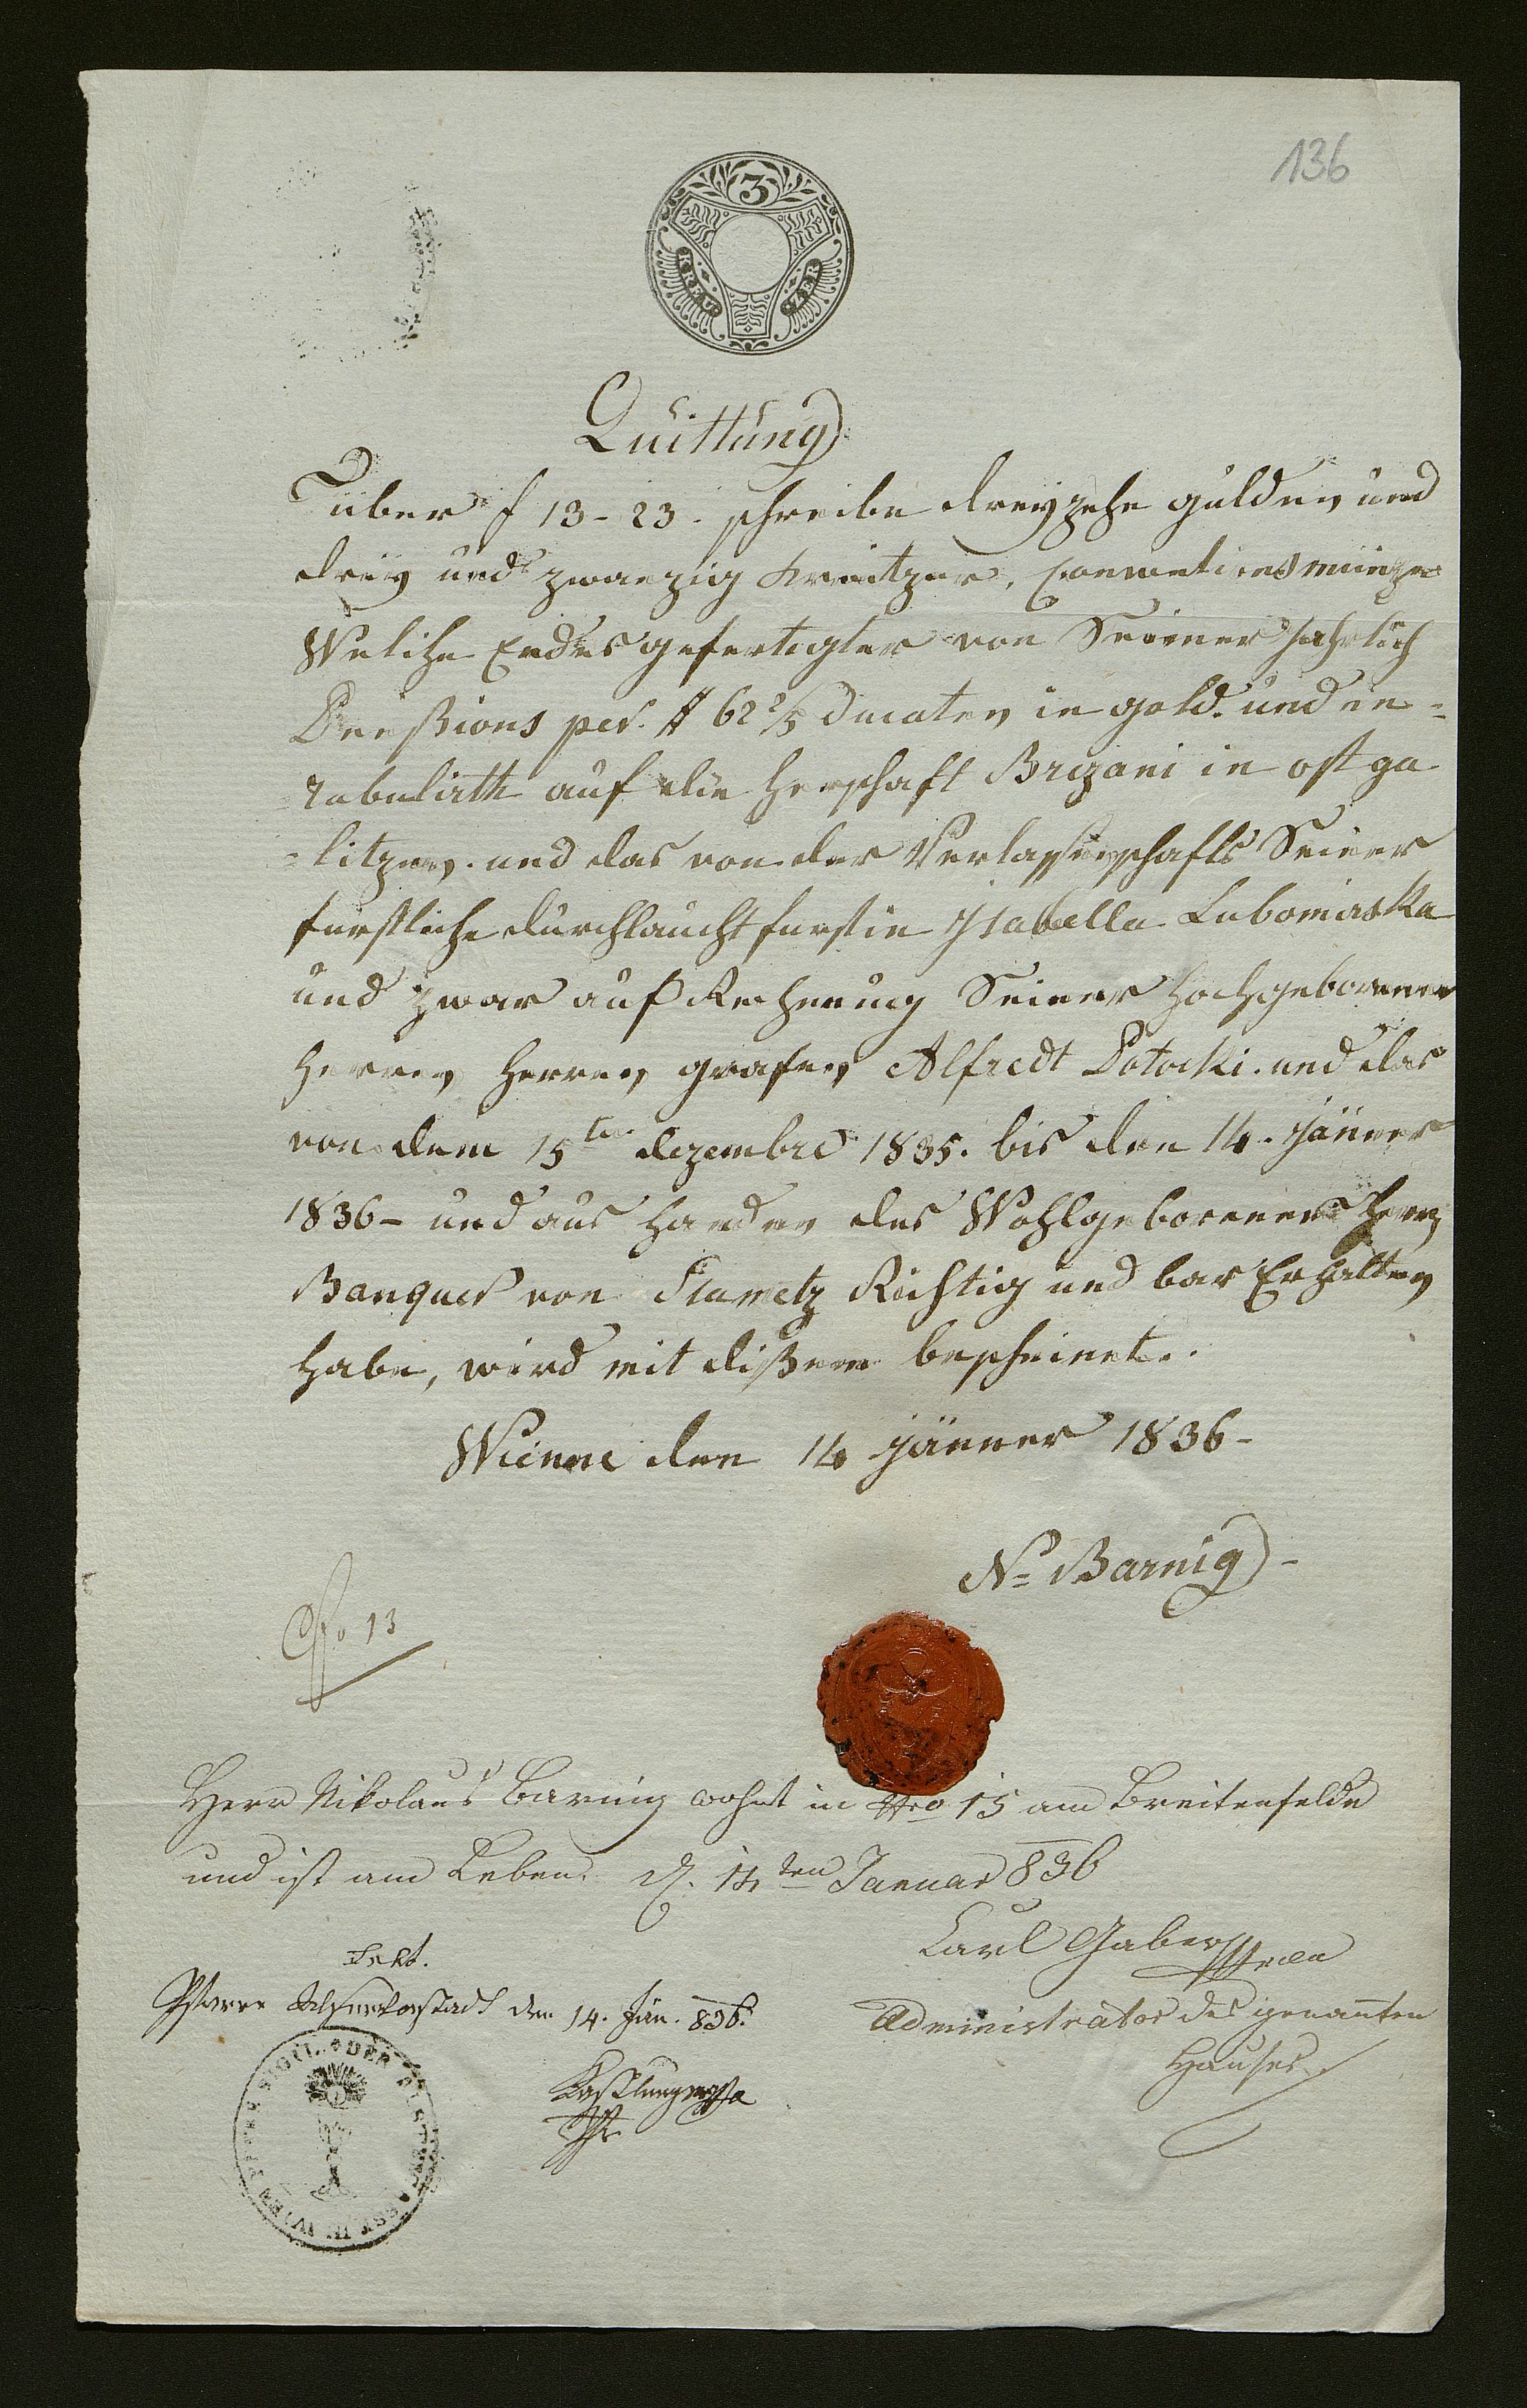 136
3
KREU ZER
Quittung
über f 13-23. schreibe dreyzehe gulden und
dreÿ und zwanzüg Kreitzer, Conwetionsmünze
Welche Endes gefertigter von Seiner Jahrlich
Penßions per # 62 2/5 Ducaten in gold. und in=
=tabulirth auf die Herschaft Brezani in ost ga
=litzien. und das von der Verlassenschafts Seiner
furstliche durchlaucht furstin Isabella Lubomirska
und zwar auf Rechnung Seiner Hochgeborener
Herren Herren grafen Alfredt Potocki. und das
von dem 15ten dezembre 1835. bis den 14. jänner
1836- und aus Handen des Wohlgeborenen Herrn
Banquer von Stametz Richtig und bar Erhalten
habe, wird mit dißem bescheinet.
Wienne den 14 jänner 1836-
N= Barnig-
13
Herr Nikolaus Barnig wohnt in Nro 15 am Breitenfelde
und ist am Leben. d. 14ten Januar 836
Carl Gaber
Administrator des genañten
Hauses
Pfarre Alservorstadt den 14. Jän. 836.
SIGIL. DER PFARRE
WIEN